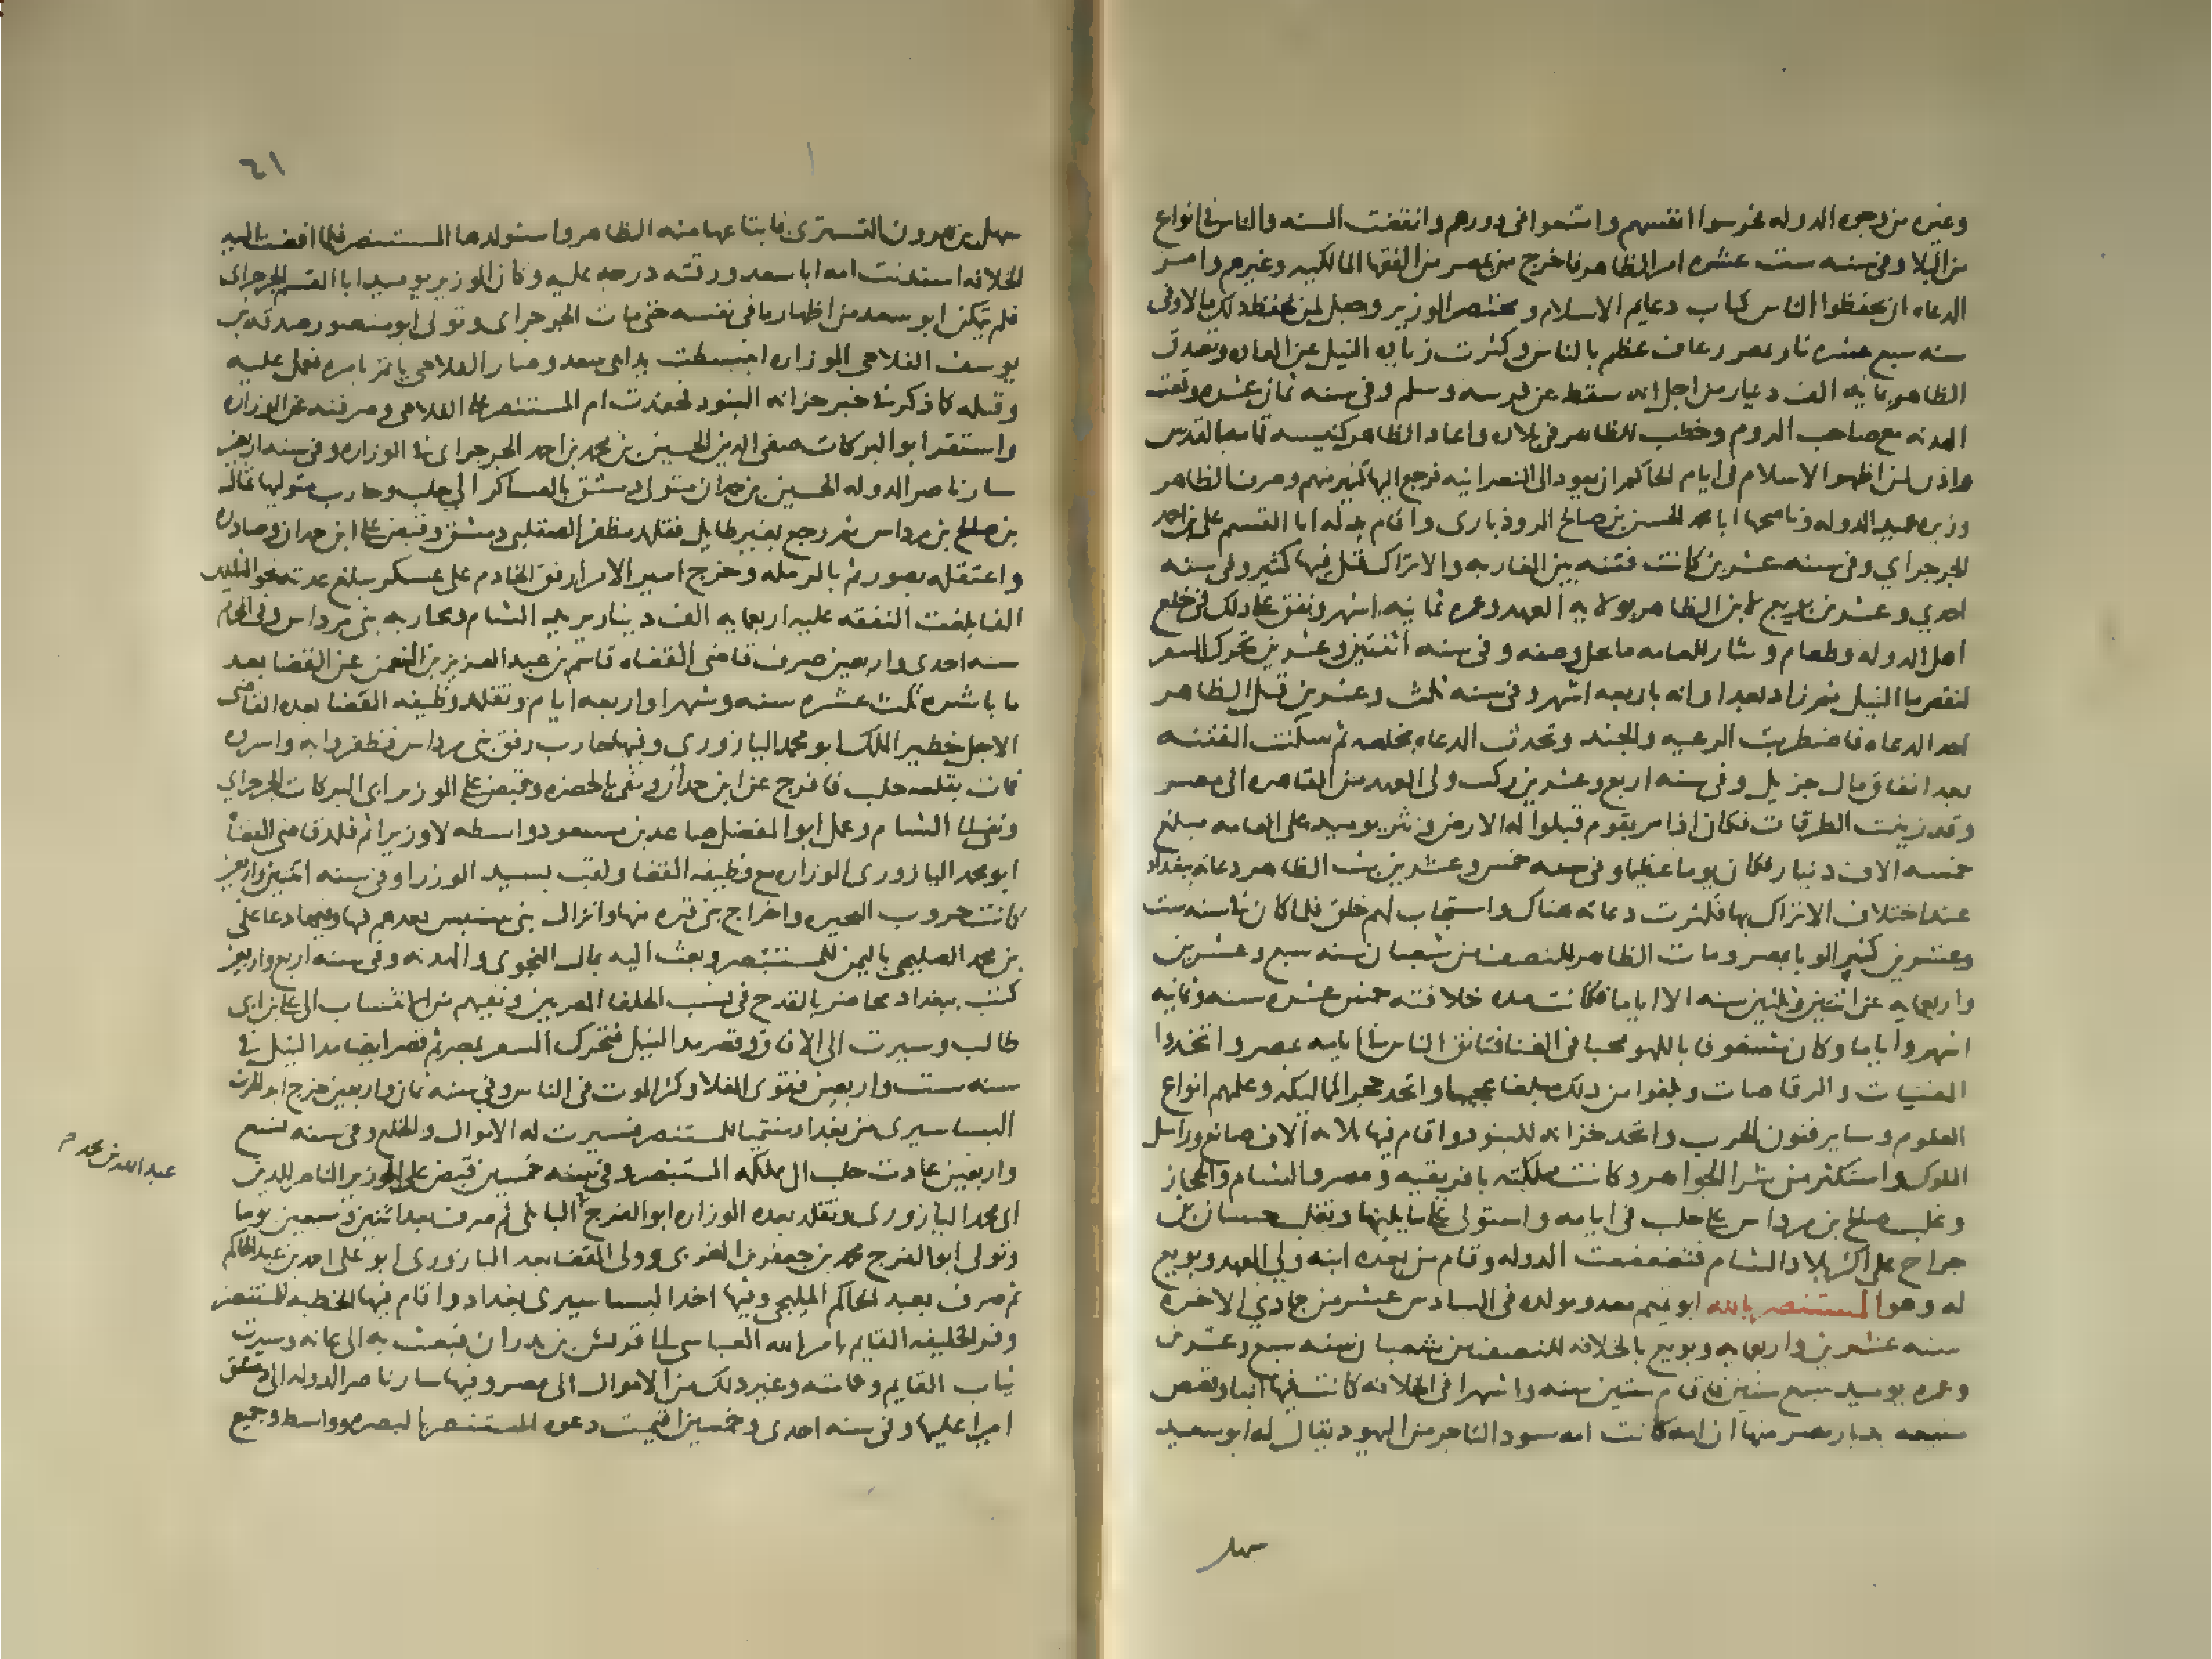 وغيره من وجوه الدوله فحرسوا انفسهم واشتموا في دورهم وانقضت السنه والناس في انواع
من البلا وفي سنه ست عشره امر الظاهر فاخرج من بمصر من الفقها المالكيه وغيرهم وامر
الدعاه ان يحفظوا الناس كتاب دعايم الاسلام ومختصر الوزير وجعل لمن يحفظ ذلك مالا وفي
سنه سبع عشره ثار بمصر رعاف عظيم بالناس وكثرت زياده النيل عن العاده وتصدق
الظاهر بمايه الف دينار من اجل انه سقط عن فرسه وسلم وفي سنه ثمان عشره وقعت
الهدنه مع صاحب الروم وخطب للظاهر في بلاده واعاد الظاهر كنيسه قمامه بالقدس
واذن لمن اظهر الاسلام في ايام الحاكم ان يعود الى النصرانيه فرجع اليها كثير منهم وصرف الظاهر
وزيره عميد الدوله وناصحها ابا محمد الحسن بن صالح الروذباري واقام بدله ابا القسم علي بن احمد
الجرجراي وفي سنه عشرين كانت فتنه بين المغاربه والاتراك قتل فيها كثير وفي سنه
احدي وعشرين بويع لابن الظاهر بولايه العهد وعمره ثمانيه اشهر وانفق على ذلك في خلع
اهل الدوله وطعام ونثار للعامه ما يجل وصفه وفي سنه اثنتين وعشرين تحرك السعر
لنقص ما النيل ثم زاد بعد اوانه باربعه اشهر وفي سنه ثلث وعشرين قتل الظاهر
احد الدعاه فاضطربت الرعيه والجند وتحدث الدعاه بخلعه ثم سكنت الفتنه
بعد انفاق مال جزيل وفي سنه اربع وعشرين ركب ولي العهد من القاهره الى مصر
وقد زينت الطرقات فكان اذا مر بقوم قبلوا له الارض ونثر يوميد على العامه مبلغ
خمسه الاف دينار فكان يوما عظيما وفي سنه خمس وعشرين بث الظاهر دعاته ببغداد
عند اختلاف الاتراك بها فكثرت دعاته هناك واستجاب لهم خلق فلما كان في سنه ست
وعشرين كثر الوبا بمصر ومات الظاهر للنصف من شعبان سنه سبع وعشرين
واربعمايه عن اثنتين وثلثين سنه الا اياما فكانت مده خلافته خمس عشره سنه وثمانيه
اشهر واياما وكان مشغوفا باللهو محبا في الغنا فتانق الناس في ايامه بمصر واتخذوا
المغنيات والرقاصات وبلغوا من ذلك مبلغا عجيبا واتخذ حجر المماليك وعلمهم انواع
العلوم وساير فنون الحرب واتخذ خزانه للبنود واقام فيها ثلاثه الاف صانع وراسل
الملوك واستكثر من شرا الجواهر وكانت مملكته بافريقيه ومصر والشام والحجاز
وغلب صالح بن مرداس على حلب في ايامه واستولى على ما يليها وتغلب حسان بن
جراح على اكثر بلاد الشام فتضعضعت الدوله وقام من بعده ابنه ولي العهد وبويع
له وهو المستنصر بالله ابو تميم معد ومولده في السادس عشر من جمادي الاخره
سنه عشرين واربعمايه وبويع بالخلافه للنصف من شعبان سنه سبع وعشرين
وعمره يوميد سبع سنين فاقام ستين سنه واشهرا في الخلافه كانت فيها انبا وقصص
بديار مصر منها ان امه كانت امه سودا لتاجر من اليهود يقال له ابو سعيد
سهل
٤١
سهل بن هرون التستري فابتاعها منه الظاهر واستولدها المستنصر فلما افضت اليه
الخلافه استدنت امه ابا سعد ورقته درجه عليه وكان الوزير يوميد ابا القسم الجرجراي
فلم يتمكن ابو سعد من اظهار ما في نفسه حتى مات الجرجراي وتولى ابو منصور صدقه بن
يوسف الفلاحي الوزاره انبسطت يد ابي سعد وصار الفلاحي ياتمر بامره فعمل عليه
وقتله كما ذكر في خبر خزانه البنود فحقدت ام المستنصر على الفلاحي وصرفته عن الوزاره
واستقر ابو البركات صفي الدين الحسين بن محمد بن احمد الجرجراي في الوزاره وفي سنه اربعين
سار ناصر الدوله الحسين بن حمدان متولي دمشق بالعساكر الى حلب وحارب متوليها ثمال
بن صالح بن مرداس ثم رجع بغير طايل فقلد مظفر الصقلبي دمشق وقبض على ابن حمدان وصادره
واعتقله بصور ثم بالرمله وخرج امير الامرا رفق الخادم على عسكر تبلغ عدته نحو الثلثين
الفا بلغت النفقه عليه اربعمايه الف دينار يريد الشام ومحاربه بني مرداس وفي المحرم
سنه احدى واربعين صرف قاضي القضاه قاسم بن عبد العزيز بن النعمن عن القضا بعد
ما باشره ثلث عشره سنه وشهرا واربعه ايام وتقلد وظيفه القضا بعده القاضي
الاجل خطير الملك ابو محمد اليازوري وفيها حارب رفق بني مرداس فظفروا به واسروه
فمات بقلعه حلب فافرج عن ابن حمدان وبقي بالحضره وقبض على الوزير ابي البركات الجرجراي
ونفي الى الشام وعمل ابو المفضل صاعد بن مسعود واسطه لا وزيرا ثم قلد قاضي القضاه
ابو محمد اليازوري الوزاره مع وظيفه القضا ولقب بسيد الوزرا وفي سنه اثنتين واربعين
كانت حروب البحيره واخراج بني قره منها وانزال بني سنبس بعدهم فيها وفيها دعا علي
بن محمد الصليحي باليمن للمستنصر وبعث اليه بمال النجوى والهدنه وفي سنه اربع واربعين
كتب ببغداد محاضر بالقدح في نسب الخلفا المصريين ونفيهم من الانتساب الى علي بن ابي
طالب وسيرت الى الافاق وقصر مد النيل فتحرك السعر بمصر ثم قصر ايضا مد النيل في
سنه ست واربعين فقوي الغلا وكثر الموت في الناس وفي سنه ثمان واربعين خرج ابو الحرث
البساسيري من بغداد منتميا للمستنصر فسيرت له الاموال والخلع وفي سنه تسع
واربعين عادت حلب الى مملكه المستنصر وفي سنه خمسين قبض على الوزير الناصر للدين
ابي محمد اليازوري وتقلد بعده الوزاره ابو الفرج البابلي ثم صرف بعد اثنين وسبعين يوما
عبد الله بن محمد
وتولى ابو الفرج محمد بن جعفر بن المغربي وولى القضا بعد اليازوري ابو علي احمد بن عبد الحاكم
ثم صرف بعبد الحاكم المليجي وفيها اخذ البساسيري بغداد واقام فيها الخطبه للمستنصر
وفر الخليفه القايم بامر الله العباسي الى قريش بن بدران فبعث به الى عانه وسيرت
ثياب القايم وعمامته وغير ذلك من الاموال الى مصر وفيها سار ناصر الدوله الى دمشق
اميرا عليها وفي سنه احدى وخمسين اقيمت دعوه المستنصر بالبصره وواسط وجميع